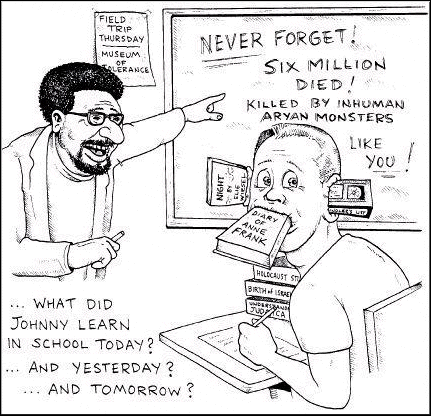 FIELD
TRIP
THURSDAY
MUSEUM
OF
TOLERANCE
NEVER FORGET!
SIX MILLION
DIED!
KILLED BY INHUMAN
ARYAN MONSTERS
LIKE
YOU!
NIGHT
BY
ELIE
WIESEL
DIARY
OF
ANNE
FRANK
HOLOCAUST ST
BIRTH OF ISRAEL
JUDAICA
... WHAT DID
JOHNNY LEARN
IN SCHOOL TODAY?
... AND YESTERDAY?
... AND TOMORROW?